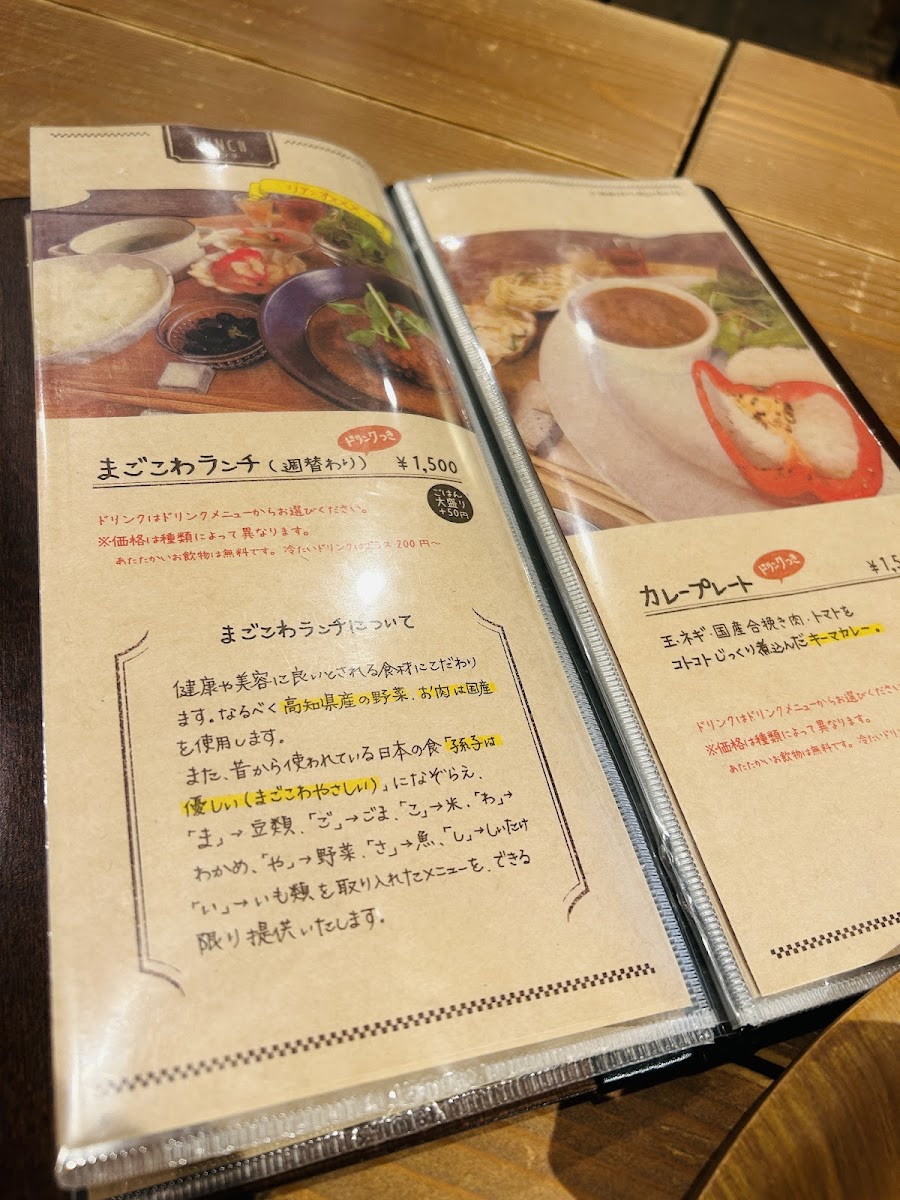 LUNCH
まごこわランチ(週替わり) ¥1,500
ドリンクつき
ごはん
大盛り
+50円
ドリンクはドリンクメニューからお選びください。
※価格は種類によって異なります。
あたたかいお飲物は無料です。冷たいドリンクはプラス200円〜
まごこわランチについて
健康や美容に良いとされる食材にこだわり
ます。なるべく高知県産の野菜、お肉は国産
を使用します。
また、昔から使われている日本の食「孫子は
優しい(まごこわやさしい)」になぞらえ、
「ま」→豆類、「ご」→ごま、「こ」→米、「わ」→
わかめ、「や」→野菜、「さ」→魚、「し」→しいたけ
「い」→いも類を取り入れたメニューを、できる
限り提供いたします。
カレープレート
ドリンクつき
¥1,5
玉ネギ・国産合挽き肉・トマトを
コトコトじっくり煮込んだキーマカレー。
ドリンクはドリンクメニューからお選びください
※価格は種類によって異なります。
あたたかいお飲物は無料です。冷たいドリ